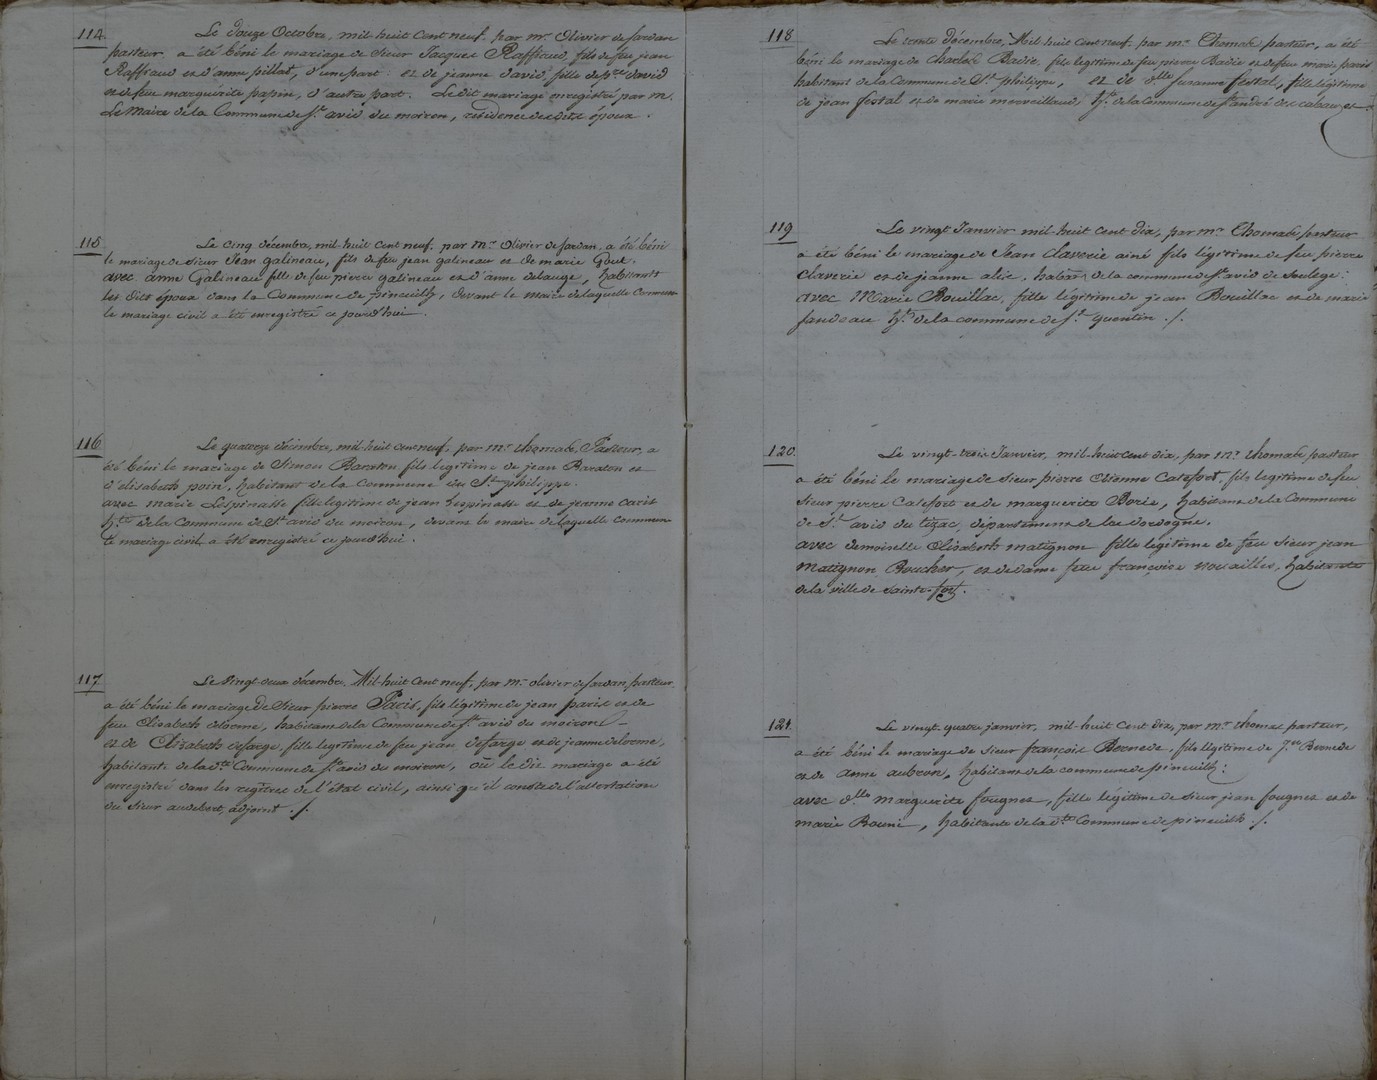 114
Le Douze Octobre, mil-huit cent neuf. par mr. Olivier de Sardan
pasteur a été béni le mariage de Sieur Jacques Raffraud, fils de feu jean
Raffraud et d'anne pillat, d'une part: et de jeanne David, fille de pre David
et de feu marguerite papin, d'autre part. Le dit mariage enregistré par m.
Le Maire de la Commune de St. avid du moiron, résidence des dits époux.
115
Le Cinq décembre, mil-huit cent neuf. par Mr. Olivier de Sardan. a été béni
le mariage de Sieur Jean galineau, fils de feu jean galineau et de marie Gout.
avec anne Galineau fille de feu pierre galineau et d'anne delauge, habitants
les dits époux dans la Commune de pineuilh, devant le maire de laquelle Commune
le mariage civil a été enregistré ce jourd'hui.
116
Le quatorze décembre, mil-huit cent neuf, par Mr. thomak, Pasteur, a
été béni le mariage de Simon Baraton fils legitime de jean Baraton et
d'elisabeth poin, habitant de la Commune de St. philippe.
avec marie Lespinasse fille legitime de jean lespinasse et de jeanne caris
hte. de la Commune de St avid du moiron, devant le maire de laquelle Commune
le mariage civil a été enregistré ce jourd'hui.
117
Le Vingt deux décembre, Mil-huit Cent neuf, par mr. olivier de Sardan pasteur.
a été béni le mariage de Sieur pierre Paris, fils légitime de jean paris et de
feu Elisabeth delorme, habitant de la Commune de St. avid du moiron
et de Elisabeth defarge, fille legitime de feu jean defarge et de jeanne delorme,
habitante de la dte Commune de St. avid du moiron, où le dit mariage a été
enregistré dans les regitres de l'état civil, ainsi qu'il conste de l'attestation
du sieur audebert, adjoint ./.
118
Le trente décembre, Mil huit cent neuf. par mr. Thomak pasteur, a été
béni le mariage de Charles Badie, fils legitime de feu pierre Badie et de feu marie paris
habitant de la Commune de St. philippe, et de dlle Suzanne festal, fille légitime
de jean festal et de marie merveillaud, hte. de la Commune de St andré des cabauzes.
119
Le vingt Janvier mil-huit cent dix, par mr. Thomak pasteur
a été béni le mariage de Jean Claverie ainé fils légitime de feu pierre
Claverie et de jeanne alic, habitant de la commune de St avid de Soulege:
avec Marie Bouillac, fille légitime de jean Bouillac et de marie
fandeau hte. de la commune de St. quentin ./.
120.
Le vingt-trois Janvier, mil-huit cent dix, par Mr. thomak pasteur
a été béni le mariage de sieur pierre Etienne Catefort, fils legitime de feu
sieur pierre Catefort et de marguerite Borie, habitant de la Commune
de St. avid du tizac, département de la dordogne.
avec demoiselle Elisabeth matignon fille legitime de feu sieur jean
matignon Boucher, et de dame feue françoise novailles, habitante
de la ville de Sainte-foy.
121.
Le vingt-quatre janvier, mil-huit cent dix, par mr. thomak pasteur,
a été béni le mariage de sieur françois Bernede, fils légitime de Jn Bernede
et de anne aubron, habitant de la commune de pineuilh:
avec dlle marguerite fougnet, fille légitime de sieur jean fougnet et de
marie Bouni, habitante de la dte Commune de pineuilh ./.